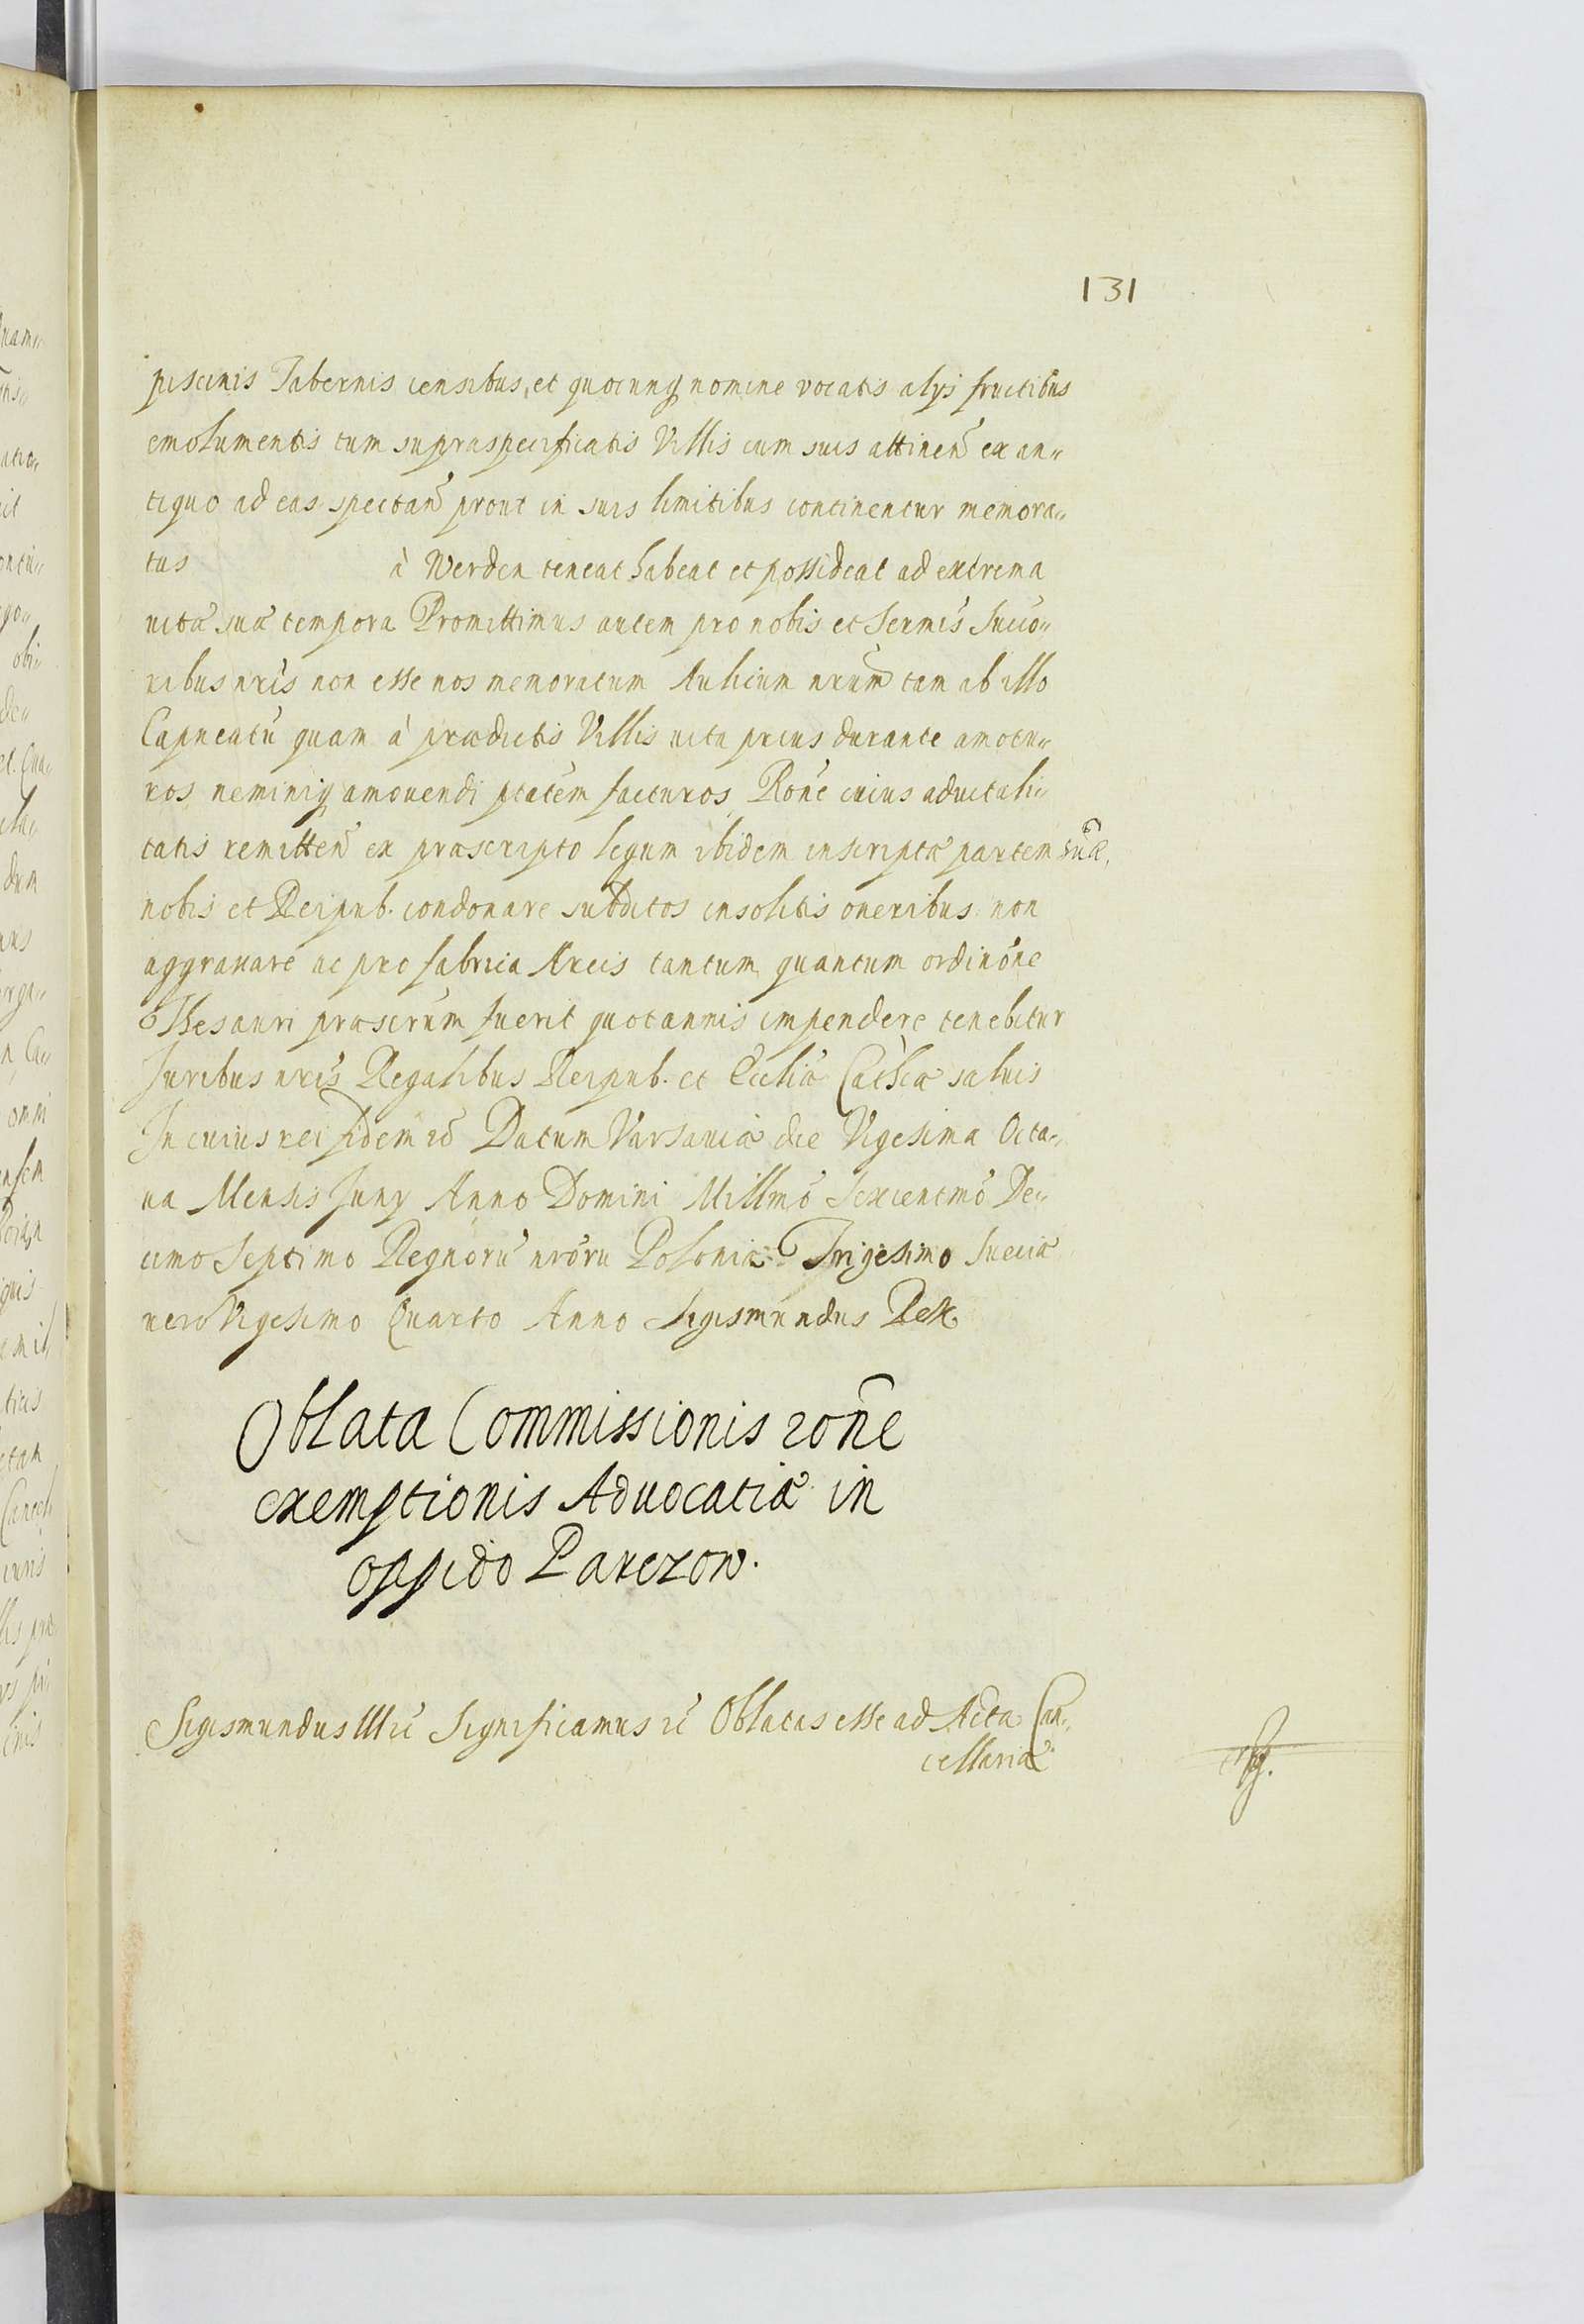 131
piscinis Tabernis censibus, et quocunq nomine vocatis alys fructibus
emolumentis tum supraspecificatis Villis cum suis attinen̄ ex an„
tiquo ad eas spectan̄ prout in suis limitibus continentur memora„
tus à Werden teneat habeat et possideat ad extrema
uitæ suæ tempora Promittimus autem pro nobis et Sermis̄ Succo„
ribus nr̄is non esse nos memoratum Aulicum nrum̄ tam ab illo
Capneatu quam à prædictis Villis uita prius durante amotu„
ros, neminiq amouendi ptatēm facturos, Rōne cuius aduitali„
tatis remitten̄ ex præscripto legum ibidem inscriptæ partem suā,
nobis et Reipub. condonare subditos insolitis oneribus non
aggrauare ac pro fabrica Arcis tantum quantum ordinōne
Thesauri præscrum̄ fuerit quotannis impendere tenebitur
Juribus nr̄is Regalibus Reipub. et Eccliæ Cathcæ saluis
In cuius rei fidem ec̄ Datum Varsauiæ die Vigesima Octa„
ua Mensis Juny Anno Domini Millmo Sexcentmo De„
cimo Septimo Regnorū nrōru Poloniæ Trigesimo Sueciæ
uero Vigesimo Quarto Anno Sigismundus Rex
Oblata Commissionis rōne
exemptionis Aduocatiæ in
oppido Parczow.
Sigismundus IIIc̄ Significamus c̄ Oblatas esse ad Acta Can„
cellariæ